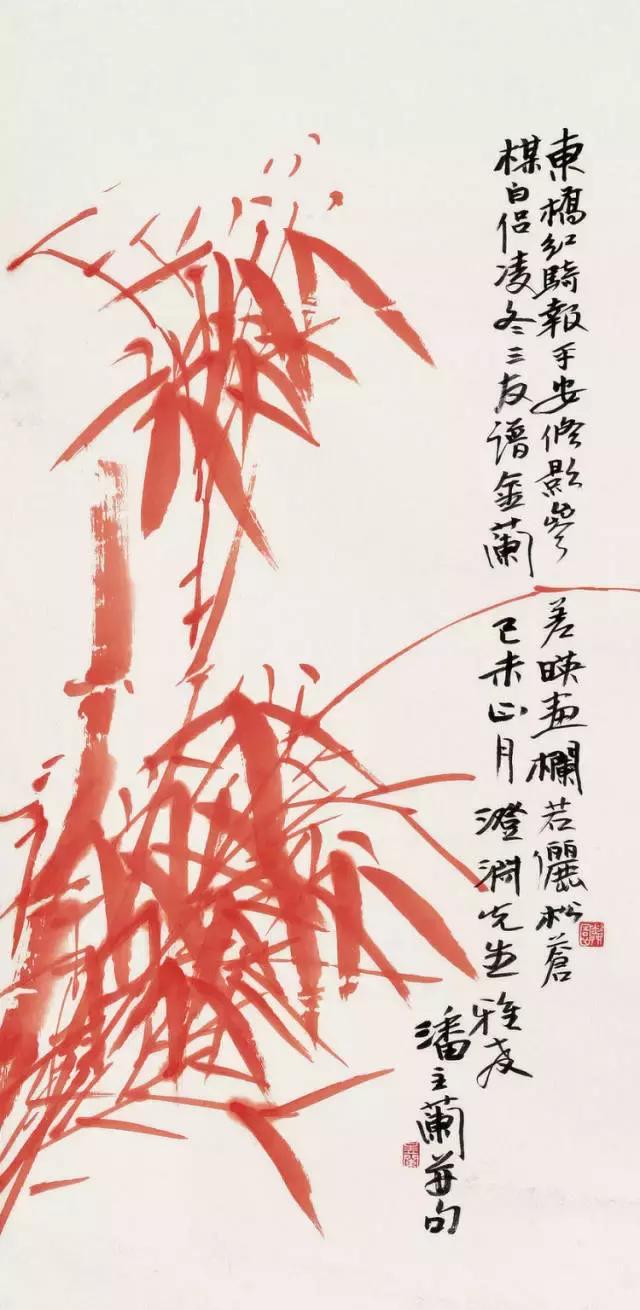 東橋紅騎報平安修影參差映畫欄若儷松蒼
楳白侣凌冬三友譜金蘭 己未正月 澄淵先生雅教
潘主蘭并句